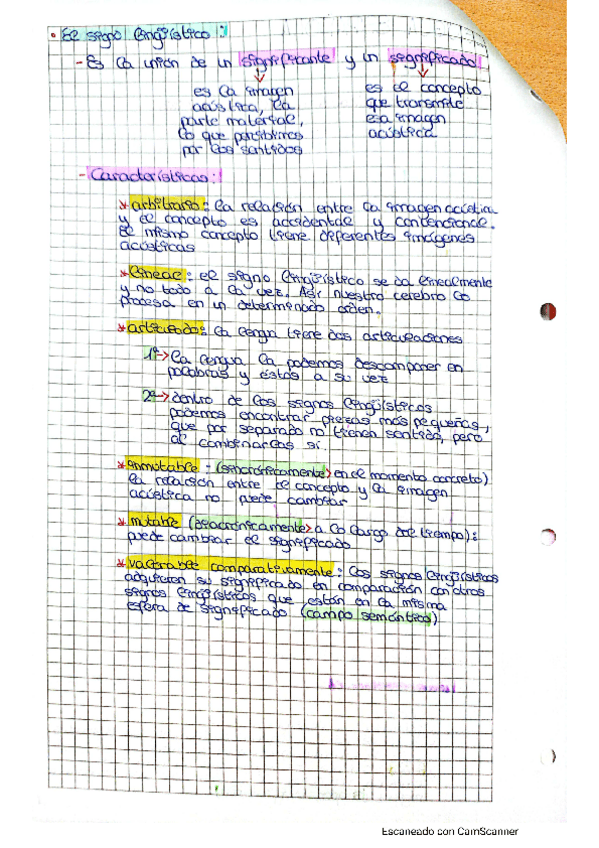 • El signo lingüístico:
- Es la unión de un significante y un significado
es la imagen
acústica, la
parte material,
lo que percibimos
por los sentidos
es el concepto
que transmite
esa imagen
acústica
- Características:
* arbitrario: la relación entre la imagen acústica
y el concepto es accidental y convencional.
El mismo concepto tiene diferentes imágenes
acústicas
* lineal: el signo lingüístico se da linealmente
y no todo a la vez. Así nuestro cerebro lo
procesa en un determinado orden.
* articulado: la lengua tiene dos articulaciones
1ª-> la lengua la podemos descomponer en
palabras y éstas a su vez
2ª-> dentro de los signos lingüísticos
podemos encontrar piezas más pequeñas,
que por separado no tienen sentido, pero
al combinarlas sí.
* inmutable - (sincrónicamente> en el momento concreto)
la relación entre el concepto y la imagen
acústica no puede cambiar
* mutable (diacrónicamente> a lo largo del tiempo):
puede cambiar el significado
* valorable comparativamente: los signos lingüísticos
adquieren su significado en comparación con otros
signos lingüísticos que están en la misma
esfera de significado (campo semántico)
Escaneado con CamScanner